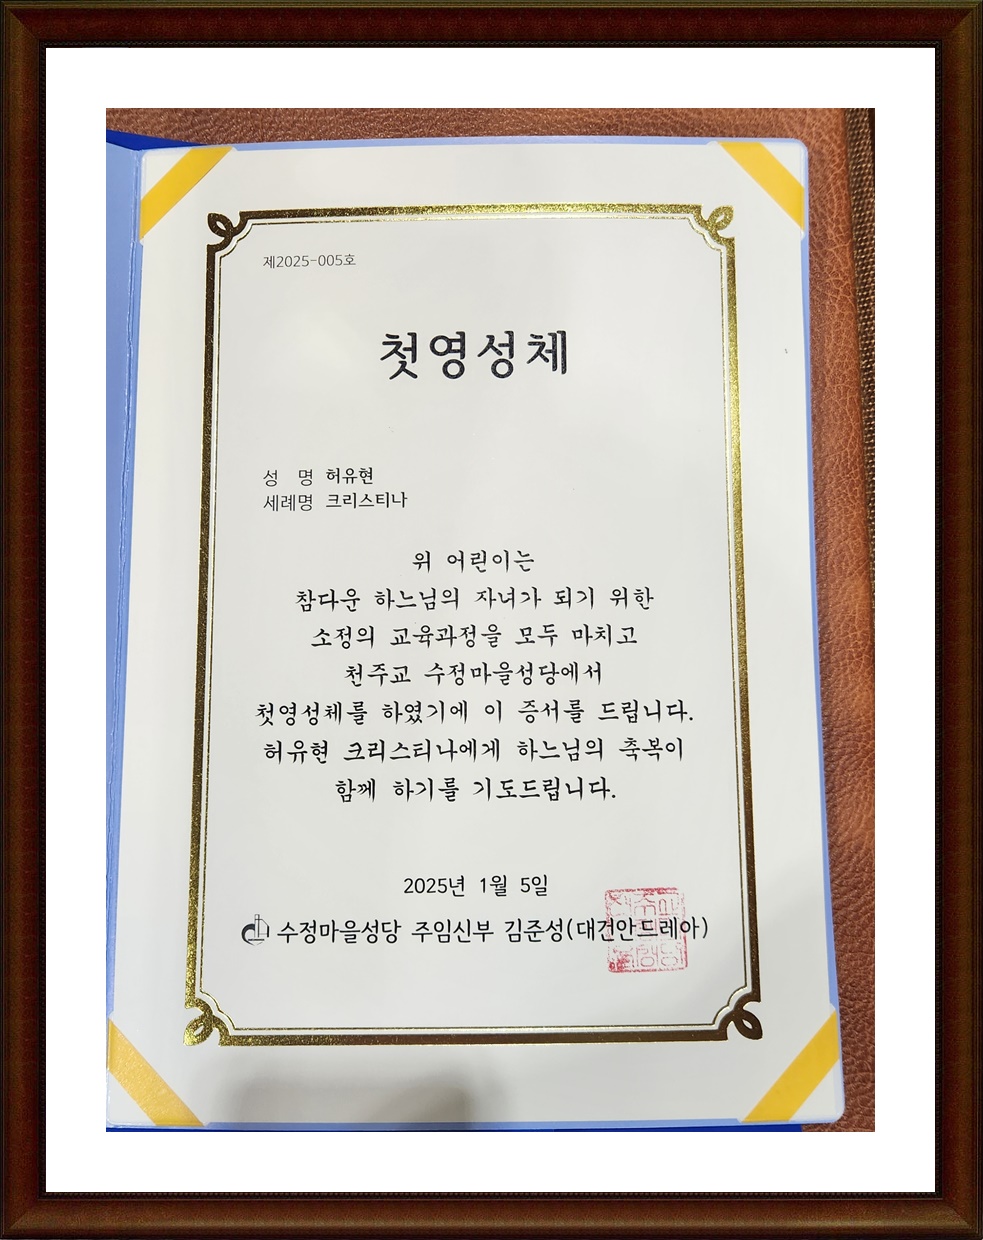 제2025-005호
첫영성체
성 명 허유현
세례명 크리스티나
위 어린이는
참다운 하느님의 자녀가 되기 위한
소정의 교육과정을 모두 마치고
천주교 수정마을성당에서
첫영성체를 하였기에 이 증서를 드립니다.
허유현 크리스티나에게 하느님의 축복이
함께 하기를 기도드립니다.
2025년 1월 5일
수정마을성당 주임신부 김준성(대건안드레아)